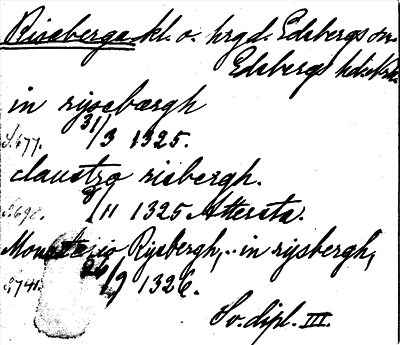 Riseberga. kl. o. hrgd. Edsbergs sn.
Edsbergs hd.
in rysæbærgh
S. 677. 31/3 1325.
claustro risbergh.
S. 698. 8/11 1325 Attersta.
Monasterio Rysbergh, .. in rysbergh,
S. 741. 26/9 1326.
Sv. dipl. III.